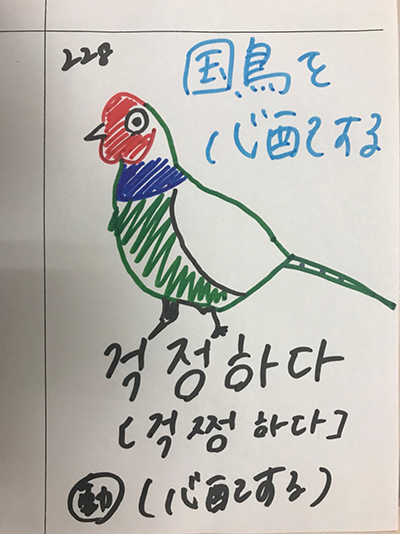 228
国鳥を
心配する
걱정하다
[걱쩡하다]
動 (心配する)